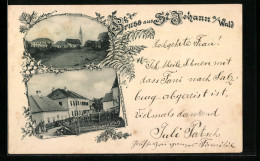 Gruss aus St. Johann a/Wald
Hochgeehrte Frau!
Ich theile Ihnen mit
dass Fani nach Salz
burg abgereist ist,
vielmals dankend
Juli Patsch